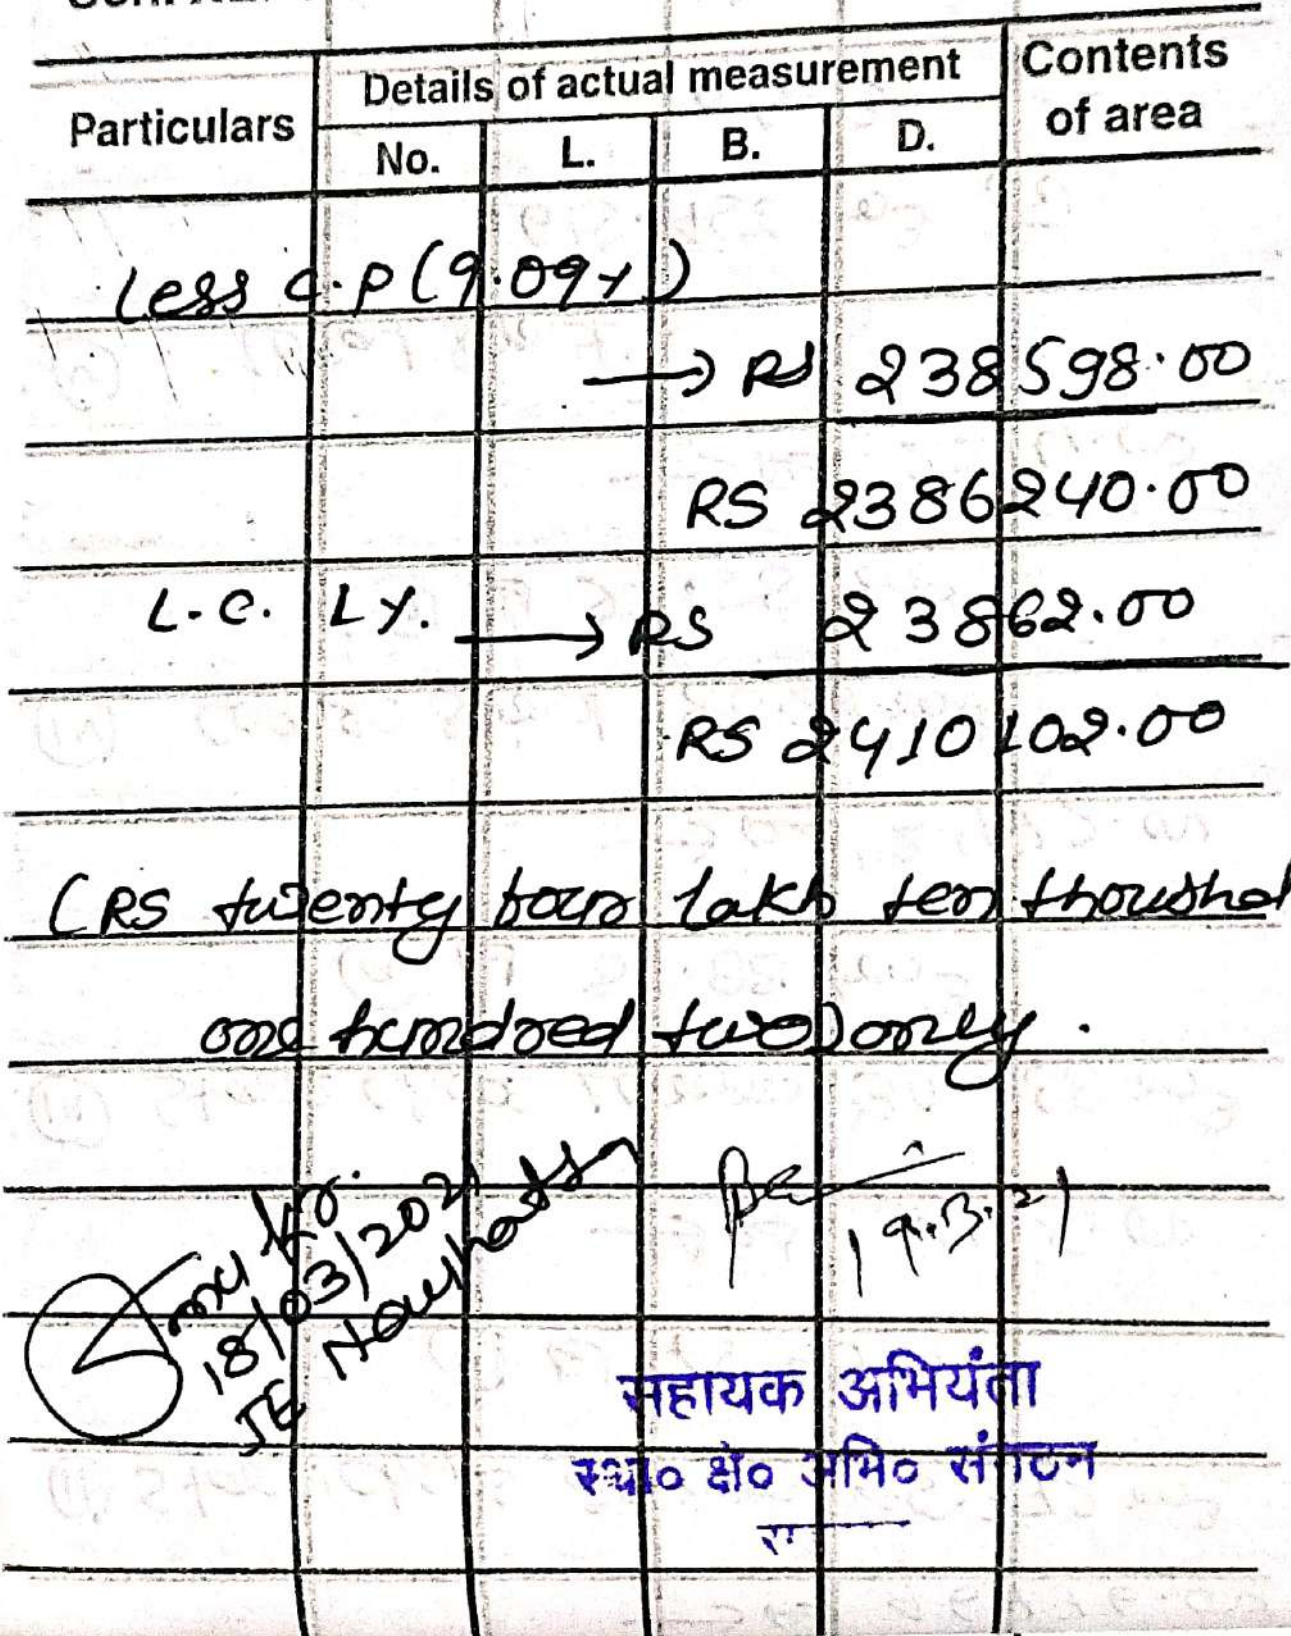 Particulars Details of actual measurement Contents of area
No. L. B. D.
Less C.P (9.09%)
→ RS 238598.00
RS 2386240.00
L.C. 1%. → RS 23862.00
RS 2410102.00
(RS twenty four lakh ten thoushad
one hundred two) only.
Kr.
18/03/2021
JE Nauhatta
19.3.21
सहायक अभियंता
स्था० क्षे० अभि० संगठन